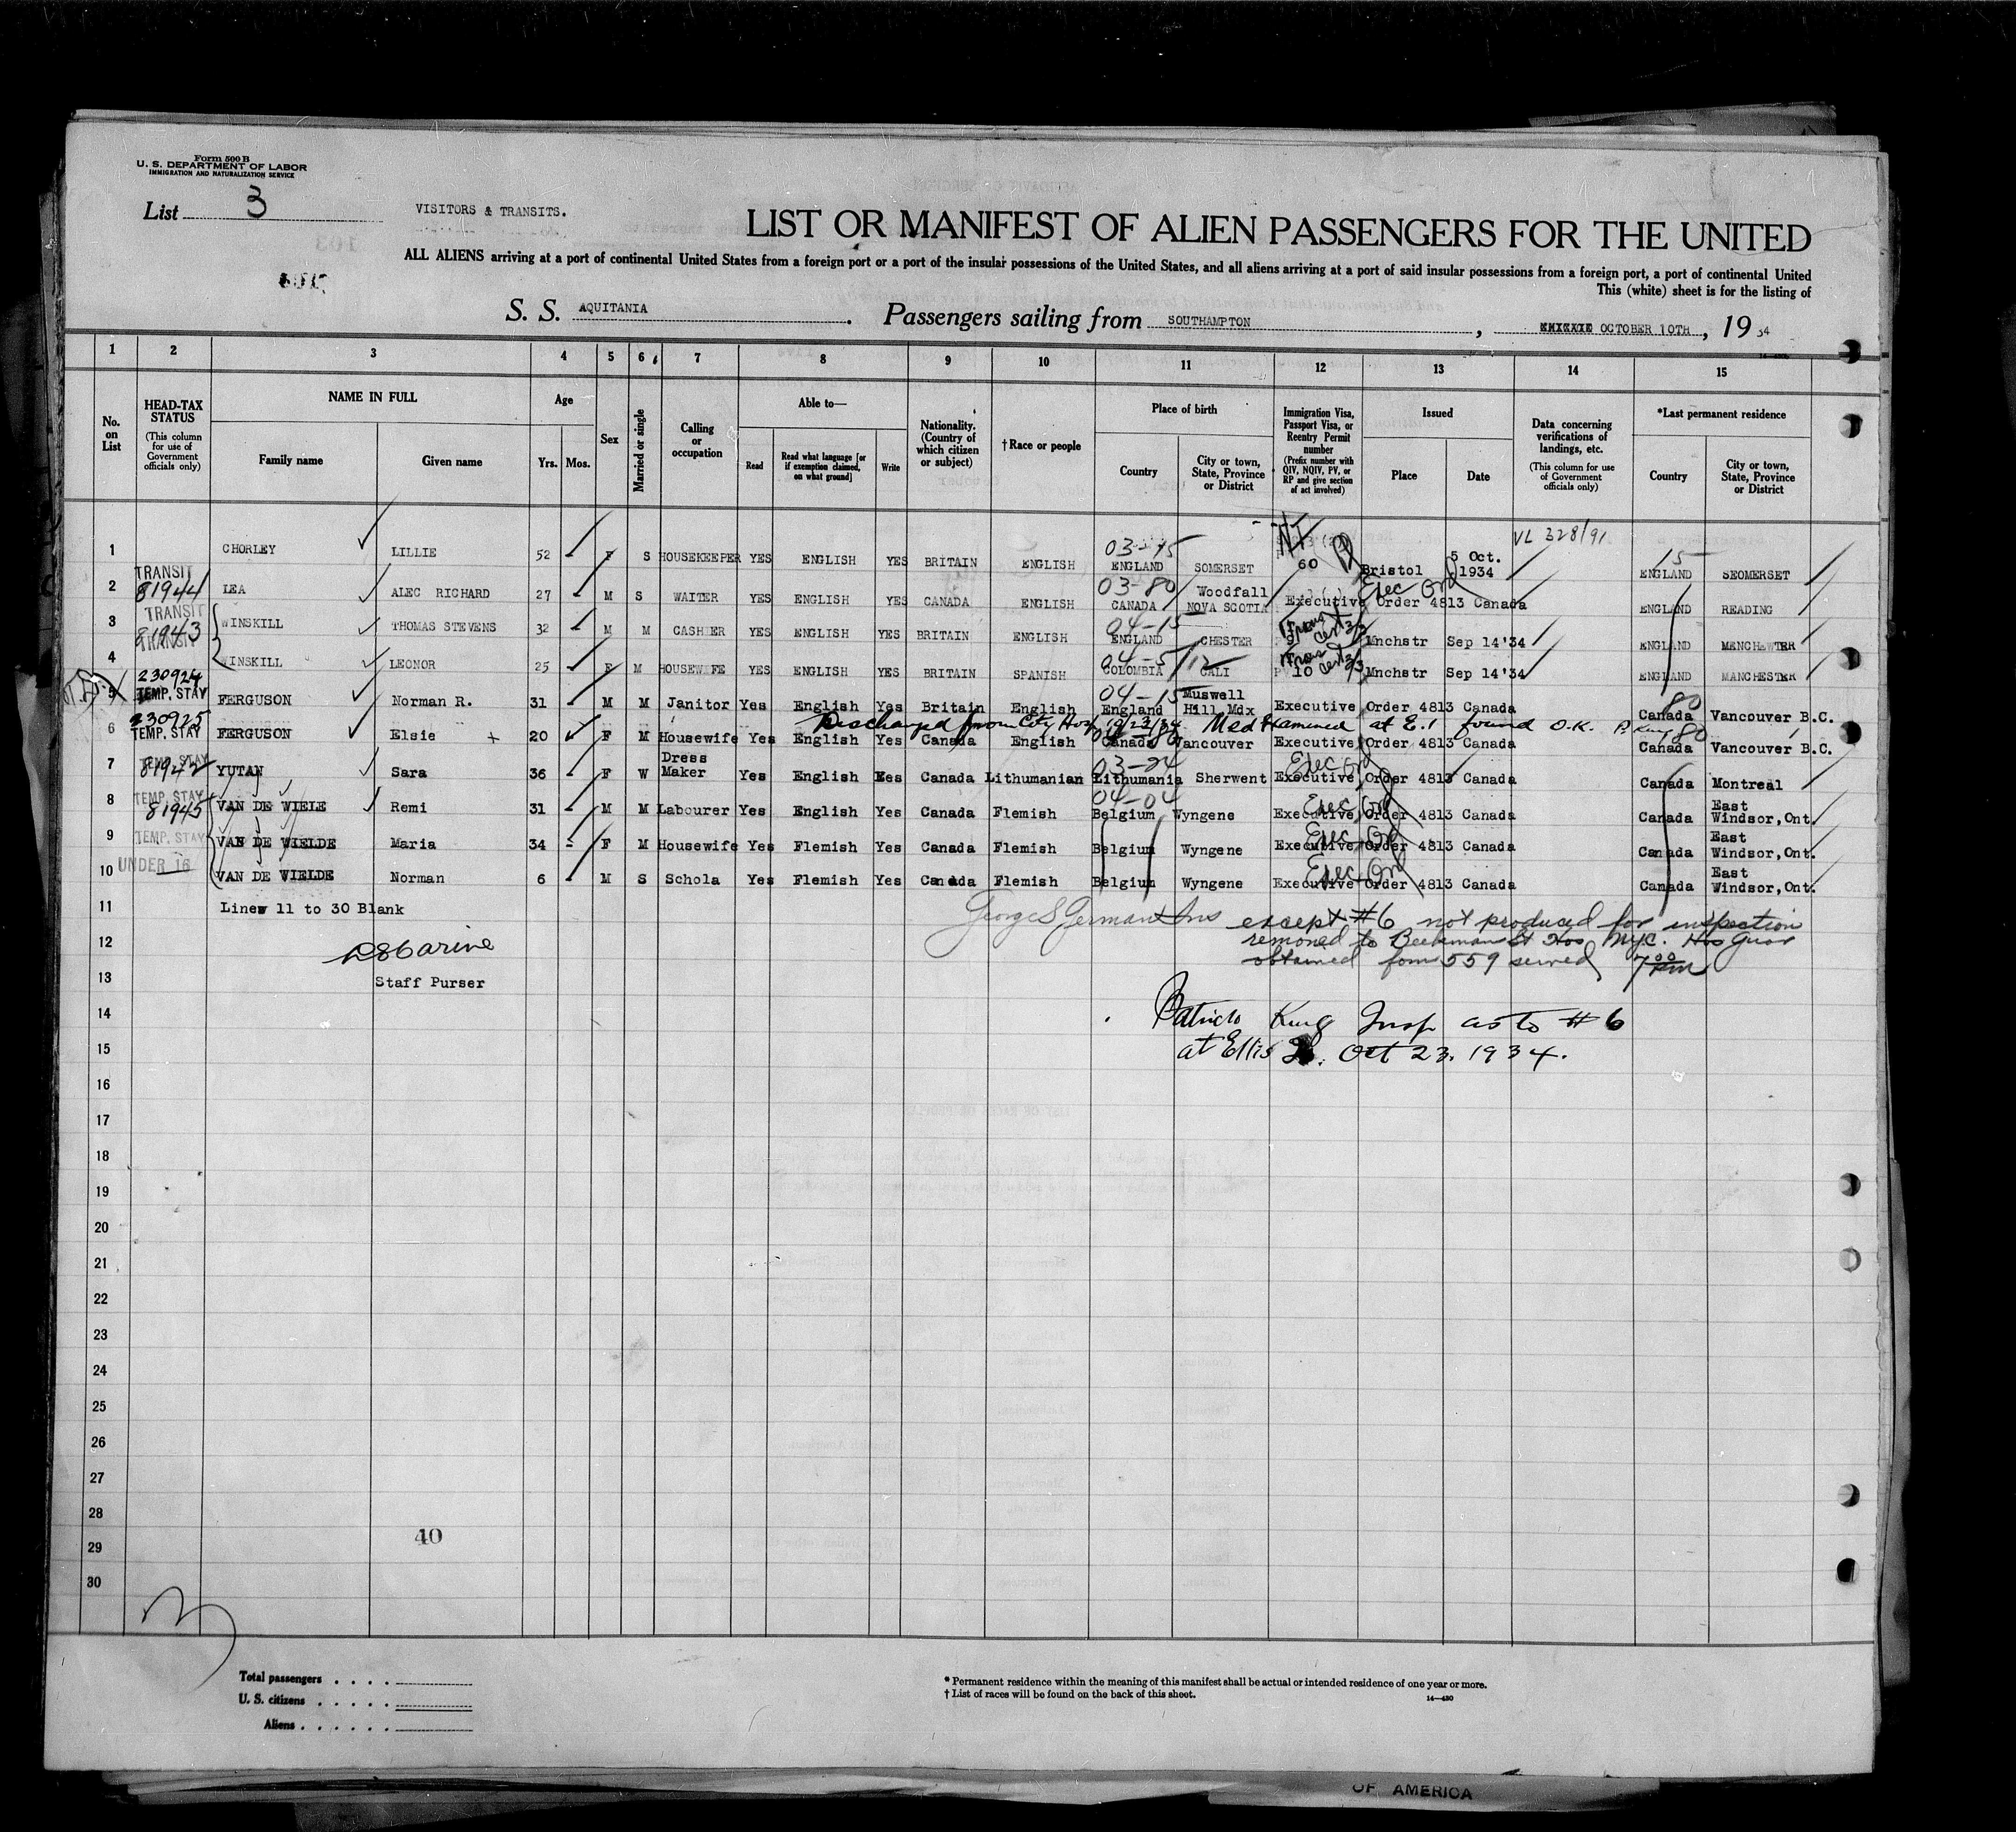 Form 500 B
U. S. DEPARTMENT OF LABOR
IMMIGRATION AND NATURALIZATION SERVICE
List 3
VISITORS & TRANSITS.
LIST OR MANIFEST OF ALIEN PASSENGERS FOR THE UNITED
ALL ALIENS arriving at a port of continental United States from a foreign port or a port of the insular possessions of the United States, and all aliens arriving at a port of said insular possessions from a foreign port, a port of continental United
This (white) sheet is for the listing of
S. S. AQUITANIA. Passengers sailing from SOUTHAMPTON, OCTOBER 10TH, 19 34
1 2 3 4 5 6 7 8 9 10 11 12 13 14 15
No. on List
HEAD-TAX STATUS (This column for use of Government officials only)
NAME IN FULL
Family name
Given name
Age
Yrs. Mos.
Sex
Married or single
Calling or occupation
Able to—
Read
Read what language [or if exemption claimed, on what ground]
Write
Nationality. (Country of which citizen or subject)
†Race or people
Place of birth
Country
City or town, State, Province or District
Immigration Visa, Passport Visa, or Reentry Permit number (Prefix number with QIV, NQIV, PV, or RP and give section of act involved)
Issued
Place
Date
Data concerning verifications of landings, etc. (This column for use of Government officials only)
*Last permanent residence
Country
City or town, State, Province or District
VL 328/91
03-15
1 CHORLEY LILLIE 52 F S HOUSEKEEPER YES ENGLISH YES BRITAIN ENGLISH ENGLAND SOMERSET 60 Bristol 5 Oct. 1934 15 ENGLAND SEOMERSET
TRANSIT 81944
03-80 Exec Ord
2 LEA ALEC RICHARD 27 M S WAITER YES ENGLISH YES CANADA ENGLISH CANADA Woodfall NOVA SCOTIA Executive Order 4813 Canada ENGLAND READING
TRANSIT 81943
04-15
3 WINSKILL THOMAS STEVENS 32 M M CASHIER YES ENGLISH YES BRITAIN ENGLISH ENGLAND CHESTER Mnchstr Sep 14'34 ENGLAND MENCHEWTER
TRANSIT
4 WINSKILL LEONOR 25 F M HOUSEWIFE YES ENGLISH YES BRITAIN SPANISH COLOMBIA CALI P 10 Mnchstr Sep 14'34 ENGLAND MANCHESTER
230924 TEMP. STAY
04-15
5 FERGUSON Norman R. 31 M M Janitor Yes English Yes Britain English England Muswell Hill, Mdx Executive Order 4813 Canada 80 Canada Vancouver B.C.
Discharged from City Hosp 10/23/34. Med Examined at E.I found O.K. P. King
230925 TEMP. STAY
6 FERGUSON Elsie + 20 F M Housewife Yes English Yes Canada English Canada Vancouver Executive Order 4813 Canada 80 Canada Vancouver B.C.
TEMP. STAY 81942
03-24 Exec Ord
7 YUTAN Sara 36 F W Dress Maker Yes English Kes Canada Lithumanian Lithumania Sherwent Executive Order 4813 Canada Canada Montreal
TEMP. STAY 81945
04-04 Exec Ord
8 VAN DE WIELE Remi 31 M M Labourer Yes English Yes Canada Flemish Belgium Wyngene Executive Order 4813 Canada Canada East Windsor, Ont.
TEMP. STAY
Exec Ord
9 VAN DE WIELDE Maria 34 F M Housewife Yes Flemish Yes Canada Flemish Belgium Wyngene Executive Order 4813 Canada Canada East Windsor, Ont.
UNDER 16
Exec Ord
10 VAN DE WIELDE Norman 6 M S Schola Yes Flemish Yes Canada Flemish Belgium Wyngene Executive Order 4813 Canada Canada East Windsor, Ont.
11 Linew 11 to 30 Blank
George S German Ins except #6 not produced for inspection
12 removed to Beekman St Hos NYC. Hos Guar
obtained form 559 served 7 00 PM
13 Staff Purser
14 Patrick King Insp as to #6
15 at Ellis Is. Oct 23. 1934.
16
17
18
19
20
21
22
23
24
25
26
27
28
40
29
30
Total passengers . . . .
U. S. citizens . . . . .
Aliens . . . . . .
* Permanent residence within the meaning of this manifest shall be actual or intended residence of one year or more.
† List of races will be found on the back of this sheet.
14—430
OF AMERICA